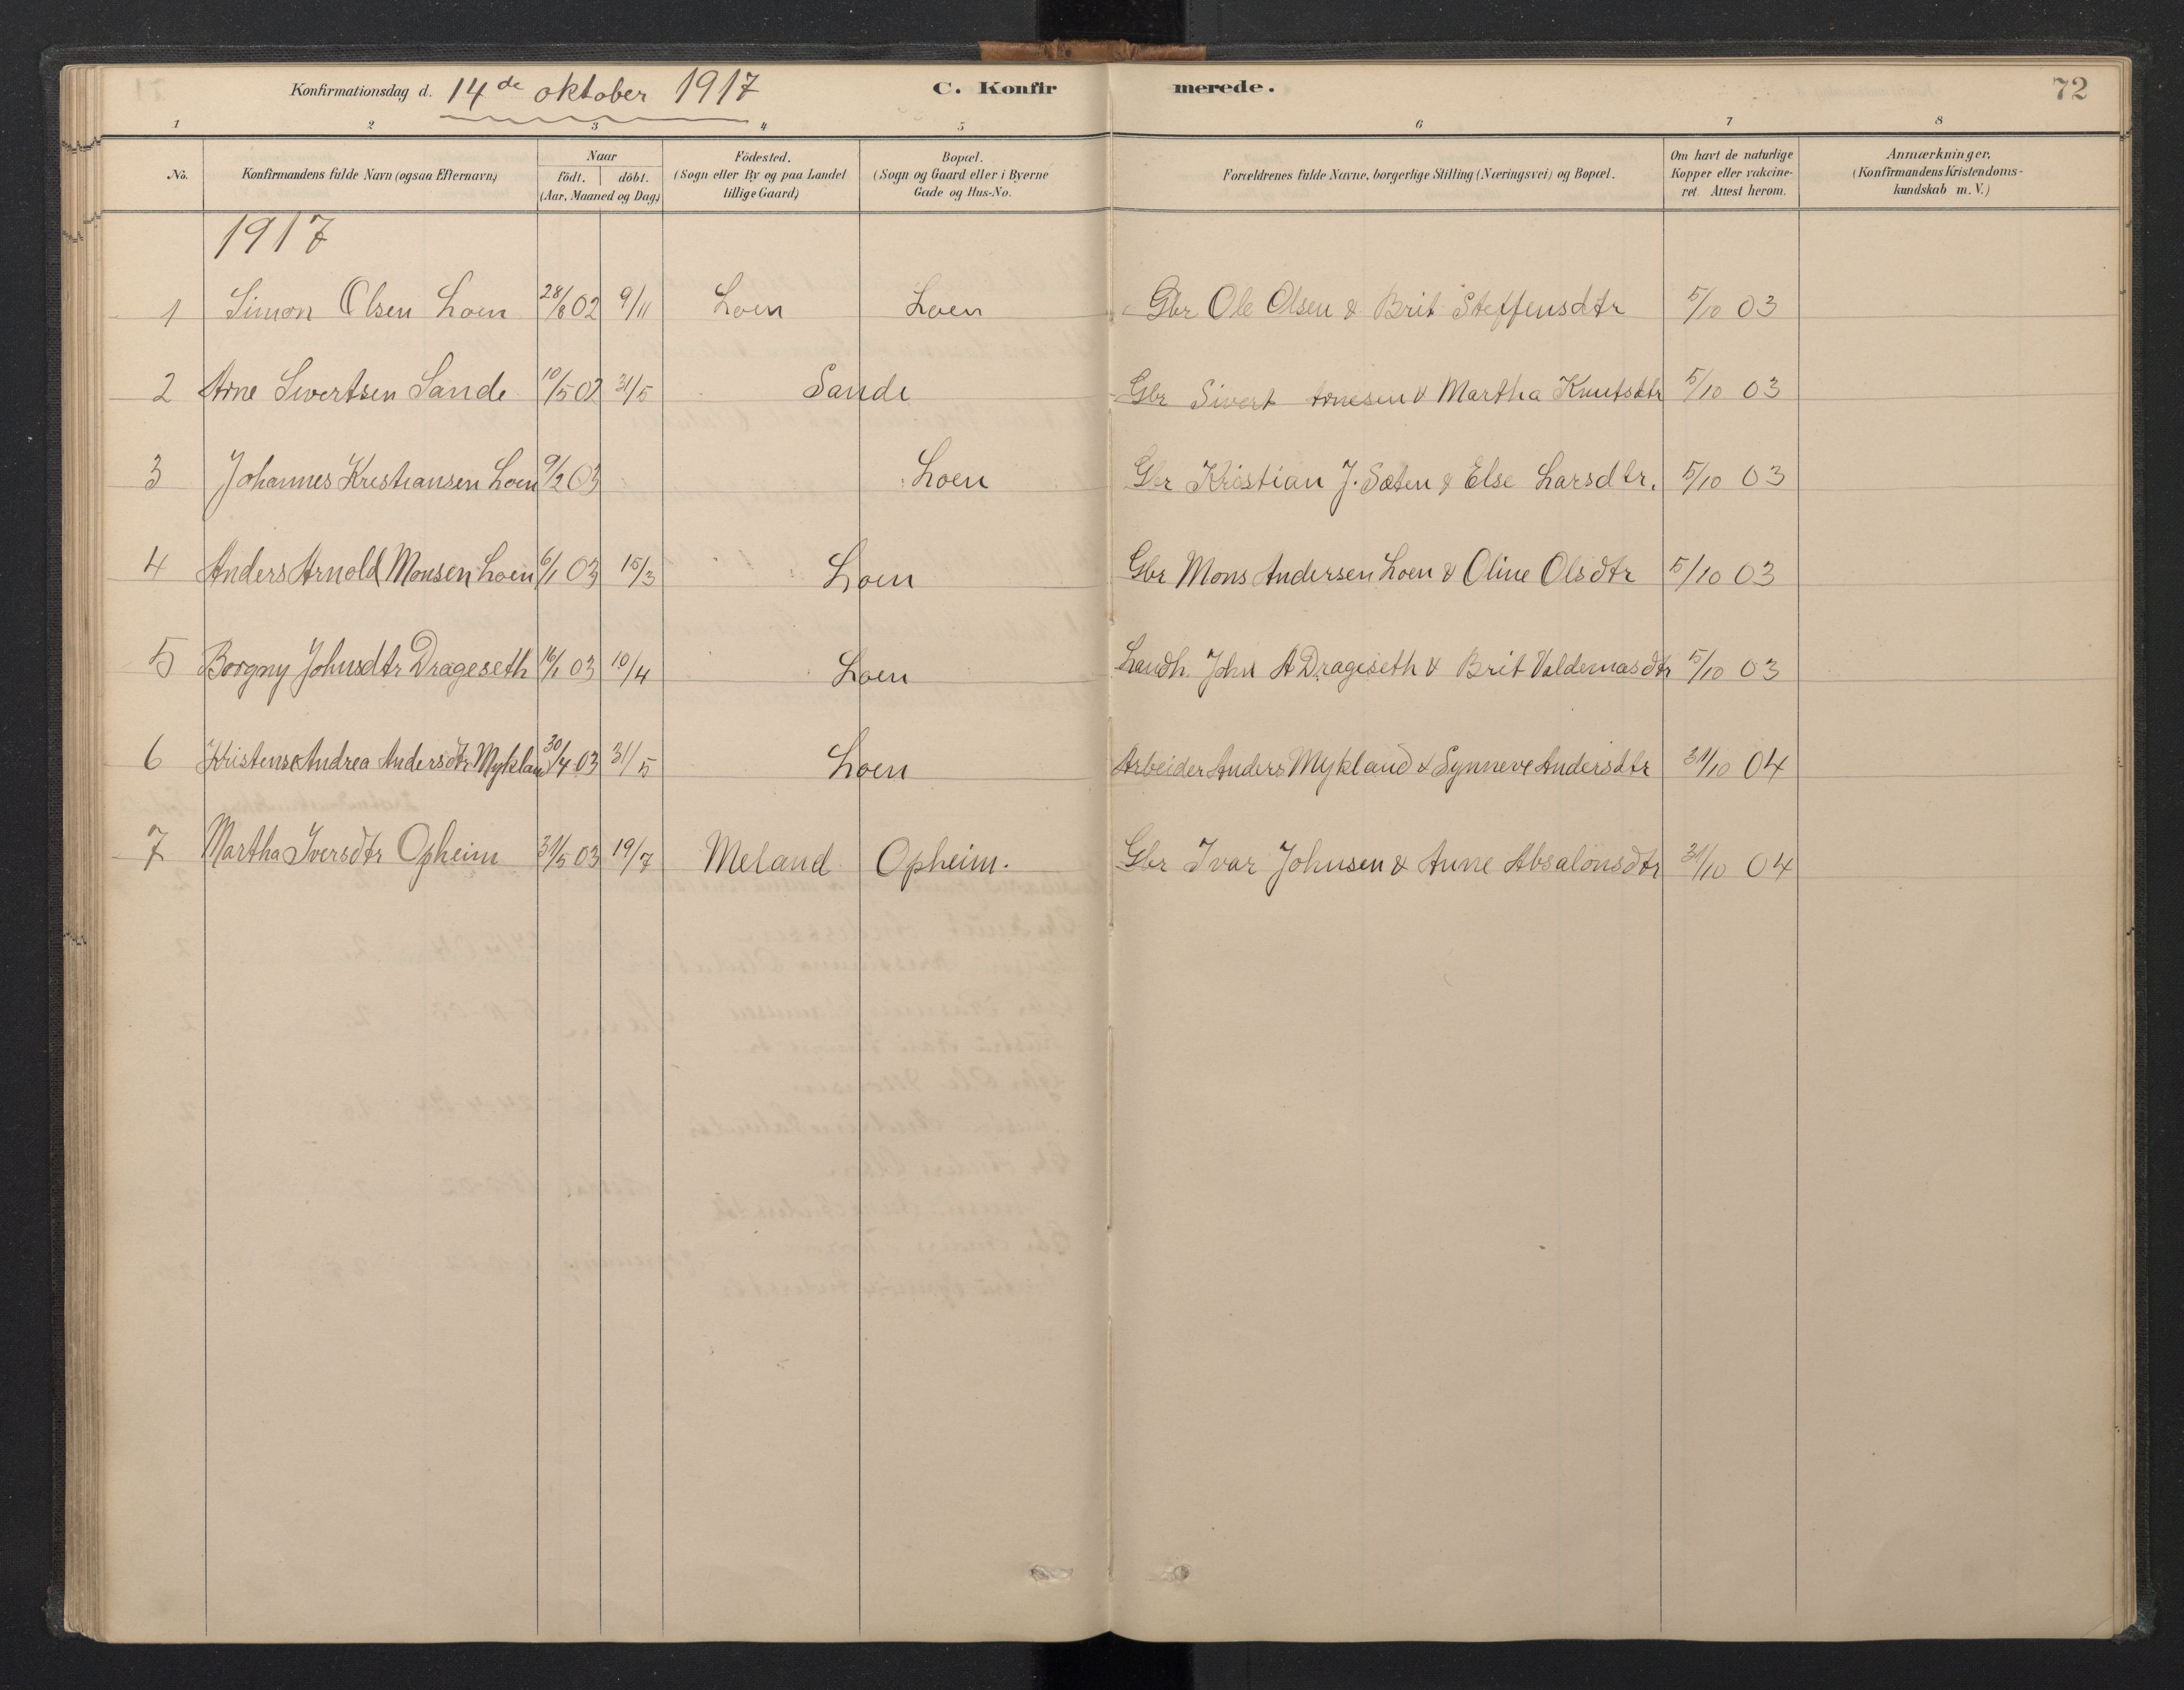 Konfirmationsdag d. 14de oktober 1917 C. Konfirmerede. 72
1 2 3 4 5 6 7 8
No. Konfirmandens fulde Navn (ogsaa Efternavn) Naar födt. döbt. (Aar, Maaned og Dag.) Födested. (Sogn eller By og paa Landet tillige Gaard) Bopæl. (Sogn og Gaard eller i Byerne Gade og Hus-No. Forældrenes fulde Navne, borgerlige Stilling (Næringsvei) og Bopæl. Om havt de naturlige Kopper eller vakcineret. Attest herom. Anmærkninger. (Konfirmandens Kristendomskundskab m. V.)
1917
1 Simon Olsen Loen 28/8 02 9/11 Loen Loen Gbr Ole Olsen & Brit Steffensdtr 5/10 03
2 Arne Sivertsen Sande 10/5 02 31/5 Sande Gbr Sivert Arnesen & Martha Knutsdtr 5/10 03
3 Johannes Kristiansen Loen 9/2 03 Loen Gbr Kristian J. Sæten & Else Larsdtr. 5/10 03
4 Anders Arnold Monsen Loen 6/1 03 15/3 Loen Gbr Mons Andersen Loen & Oline Olsdtr 5/10 03
5 Borgny Johnsdtr Drageseth 16/1 03 10/4 Loen Landh. John A Drageseth & Brit Valdemasdtr 5/10 03
6 Kristense Andrea Andersdtr Mykland 30/4 03 31/5 Loen Arbeider Anders Mykland & Synneve Andersdtr 31/10 04
7 Martha Iversdtr Opheim 31/5 03 19/7 Meland Opheim. Gbr Ivar Johnsen & Anne Absalonsdtr 31/10 04